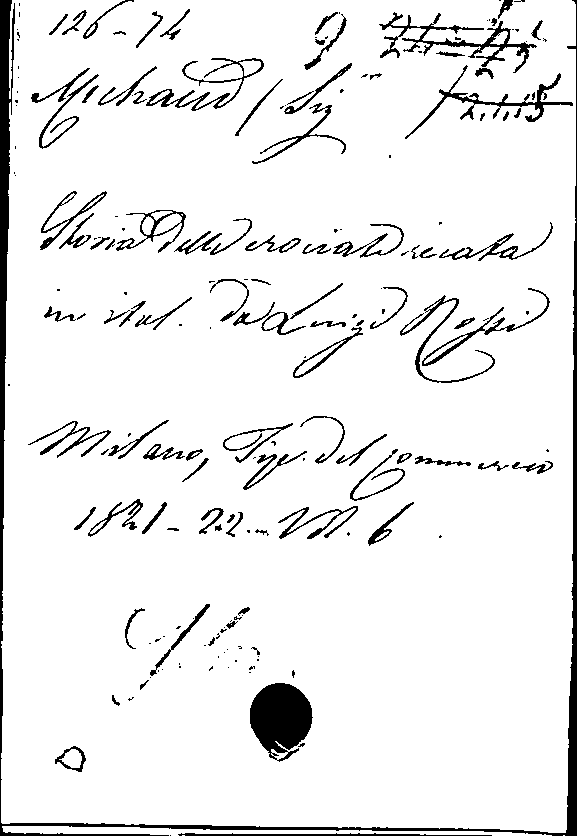 126-74 9
Michaud / Sig / 2.1.15
Storia delle crociate recata
in ital. da Luigi Rossi
Milano, Tip. del Commercio
1821-22... Vol. 6.